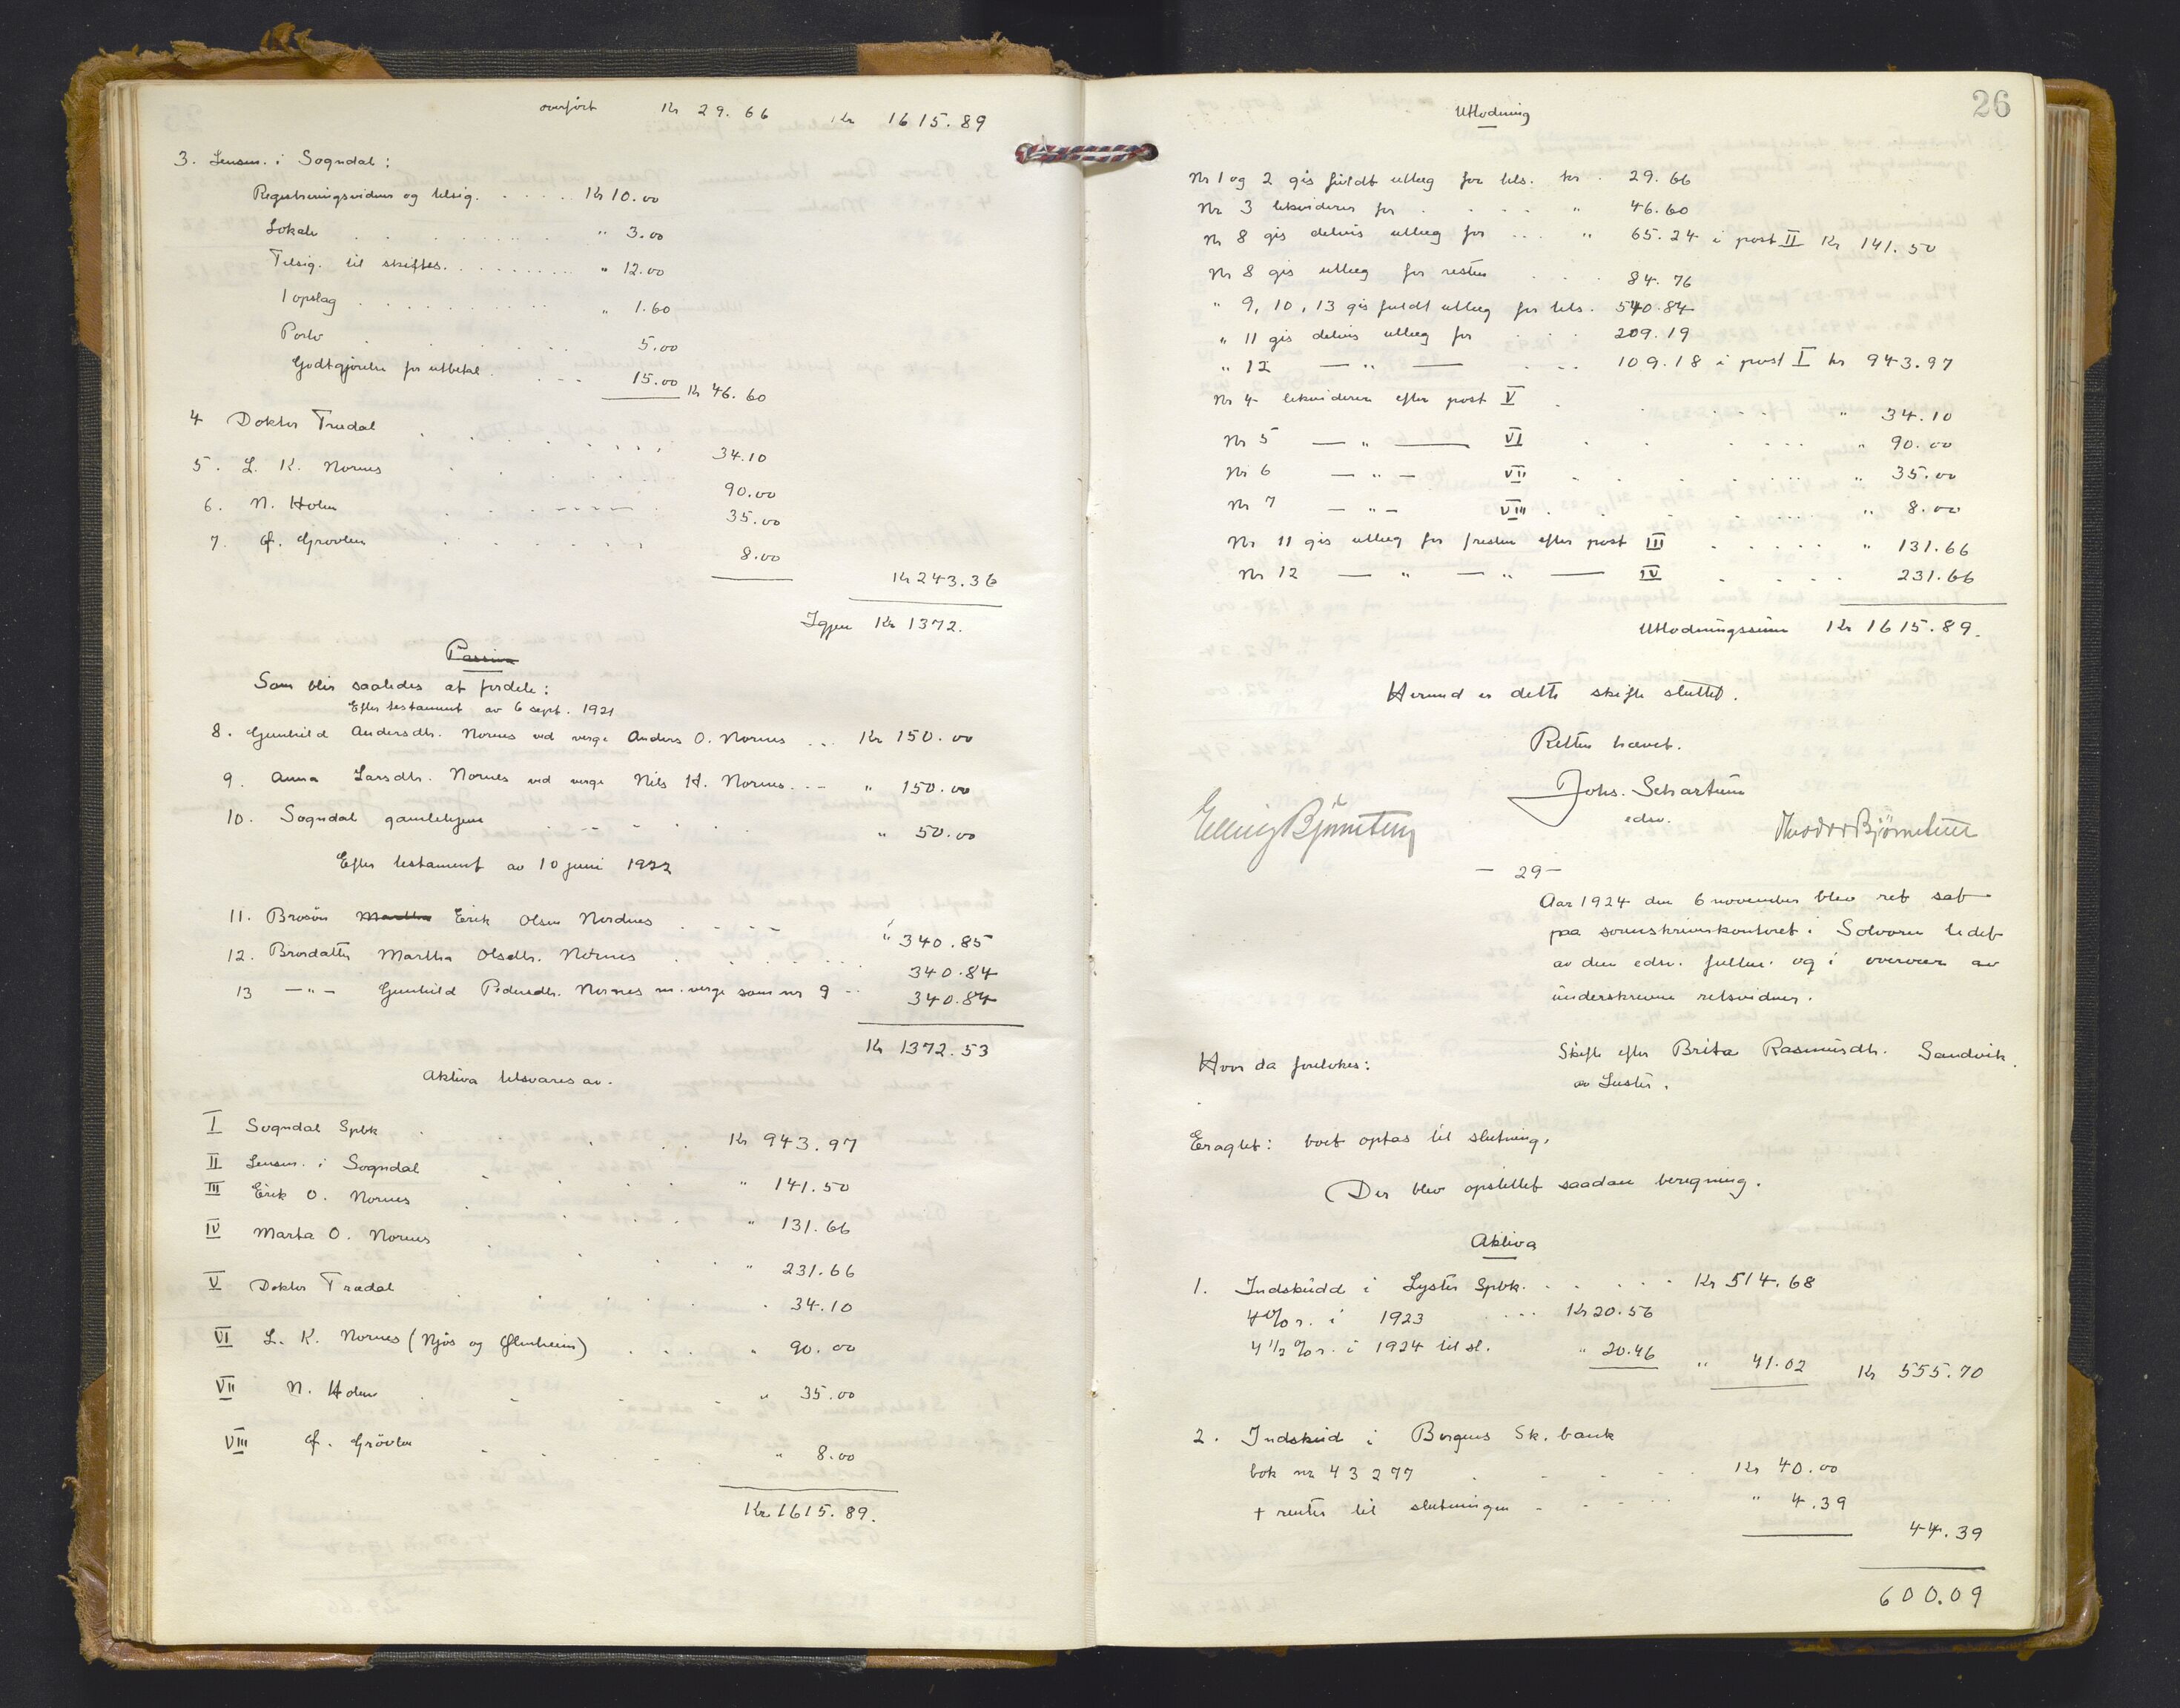 overført Kr 29.66 Kr 1615.89
3. Lensm. i Sogndal:
Registreringsvidner og tilsig. Kr 10.00
Lokale " 3.00
Tilsig. til skiftes. " 12.00
1 opslag " 1.60
Porto 5.00
Godtgjørelse for utbetal. 15.00 Kr 46.60
4 Doktor Trædal 34.10
5. L. K. Nornes 90.00
6. N. Holen 35.00
7. Grøvlen 8.00
Kr 243.36
Igjen Kr 1372.
Passiva
Som blir saaledes at fordele:
Efter testament av 6 sept. 1921
8. Gunhild Andersdtr. Nornes ved verge Anders O. Nornes Kr 150.00
9. Anna Larsdtr. Nornes ved verge Nils H. Nornes " 150.00
10. Sogndal gamlehjem " 50.00
Efter testament av 10 juni 1922
11. Brosøn Martha Erik Olsen Nordnes " 340.85
12. Brordatter Martha Olsdtr. Nornes 340.84
13 -"- Gunhild Pedersdtr. Nornes m. verge som nr 9 340.84
Kr 1372.53
Aktiva tilsvares av.
I Sogndal Spbk Kr 943.97
II Lensm. i Sogndal " 141.50
III Erik O. Nornes " 131.66
IV Marta O. Nornes " 231.66
V Doktor Trædal 34.10
VI L. K. Nornes (Njøs og Ølmheim) " 90.00
VII N. Holen " 35.00
VIII Grøvlen " 8.00
Kr. 1615.89.
26
Utlodning
Nr 1 og 2 gis fuldt utlæg for tils. kr. 29.66
Nr 3 likviderer for " 46.60
Nr 8 gis delvis utlæg for " 65.24 i post II Kr 141.50
Nr 8 gis utlæg for resten 84.76
" 9, 10, 13 gis fuldt utlæg for tils. 540.84
" 11 gis delvis utlæg for 209.19
" 12 — " — 109.18 i post I kr 943.97
Nr 4 likviderer efter post V " 34.10
Nr 5 — " — VI " 90.00
Nr 6 — " — VII " 35.00
Nr 7 — " — VIII " 8.00
Nr 11 gis utlæg for resten efter post III " 131.66
Nr 12 — " — " — IV 231.66
Utlodningssum Kr 1615.89.
Hermed er dette skifte sluttet.
Retten hævet.
Johs. Schartum
edsv.
Elling Bjørnetun Theodor Bjørnetun
- 29 -
Aar 1924 den 6 november blev ret sat
paa sorenskriverkontoret i Solvorn ledet
av den edsv. fullm. og i overvær av
underskrevne retsvidner.
Hvor da foretokes: Skifte efter Brita Rasmusdtr. Sandvik
av Luster.
Eragtet: boet optas til slutning.
Der blev opstillet saadan beregning.
Aktiva
1. Indskudd i Lyster Spbk. Kr 514.68
4% r. i 1923 Kr 20.56
4 1/2 % r. i 1924 til sl. " 20.46 " 41.02 Kr 555.70
2. Indskud i Bergens Sk. bank
bok nr 43277 Kr 40.00
+ renter til slutningen " 4.39
44.39
600.09